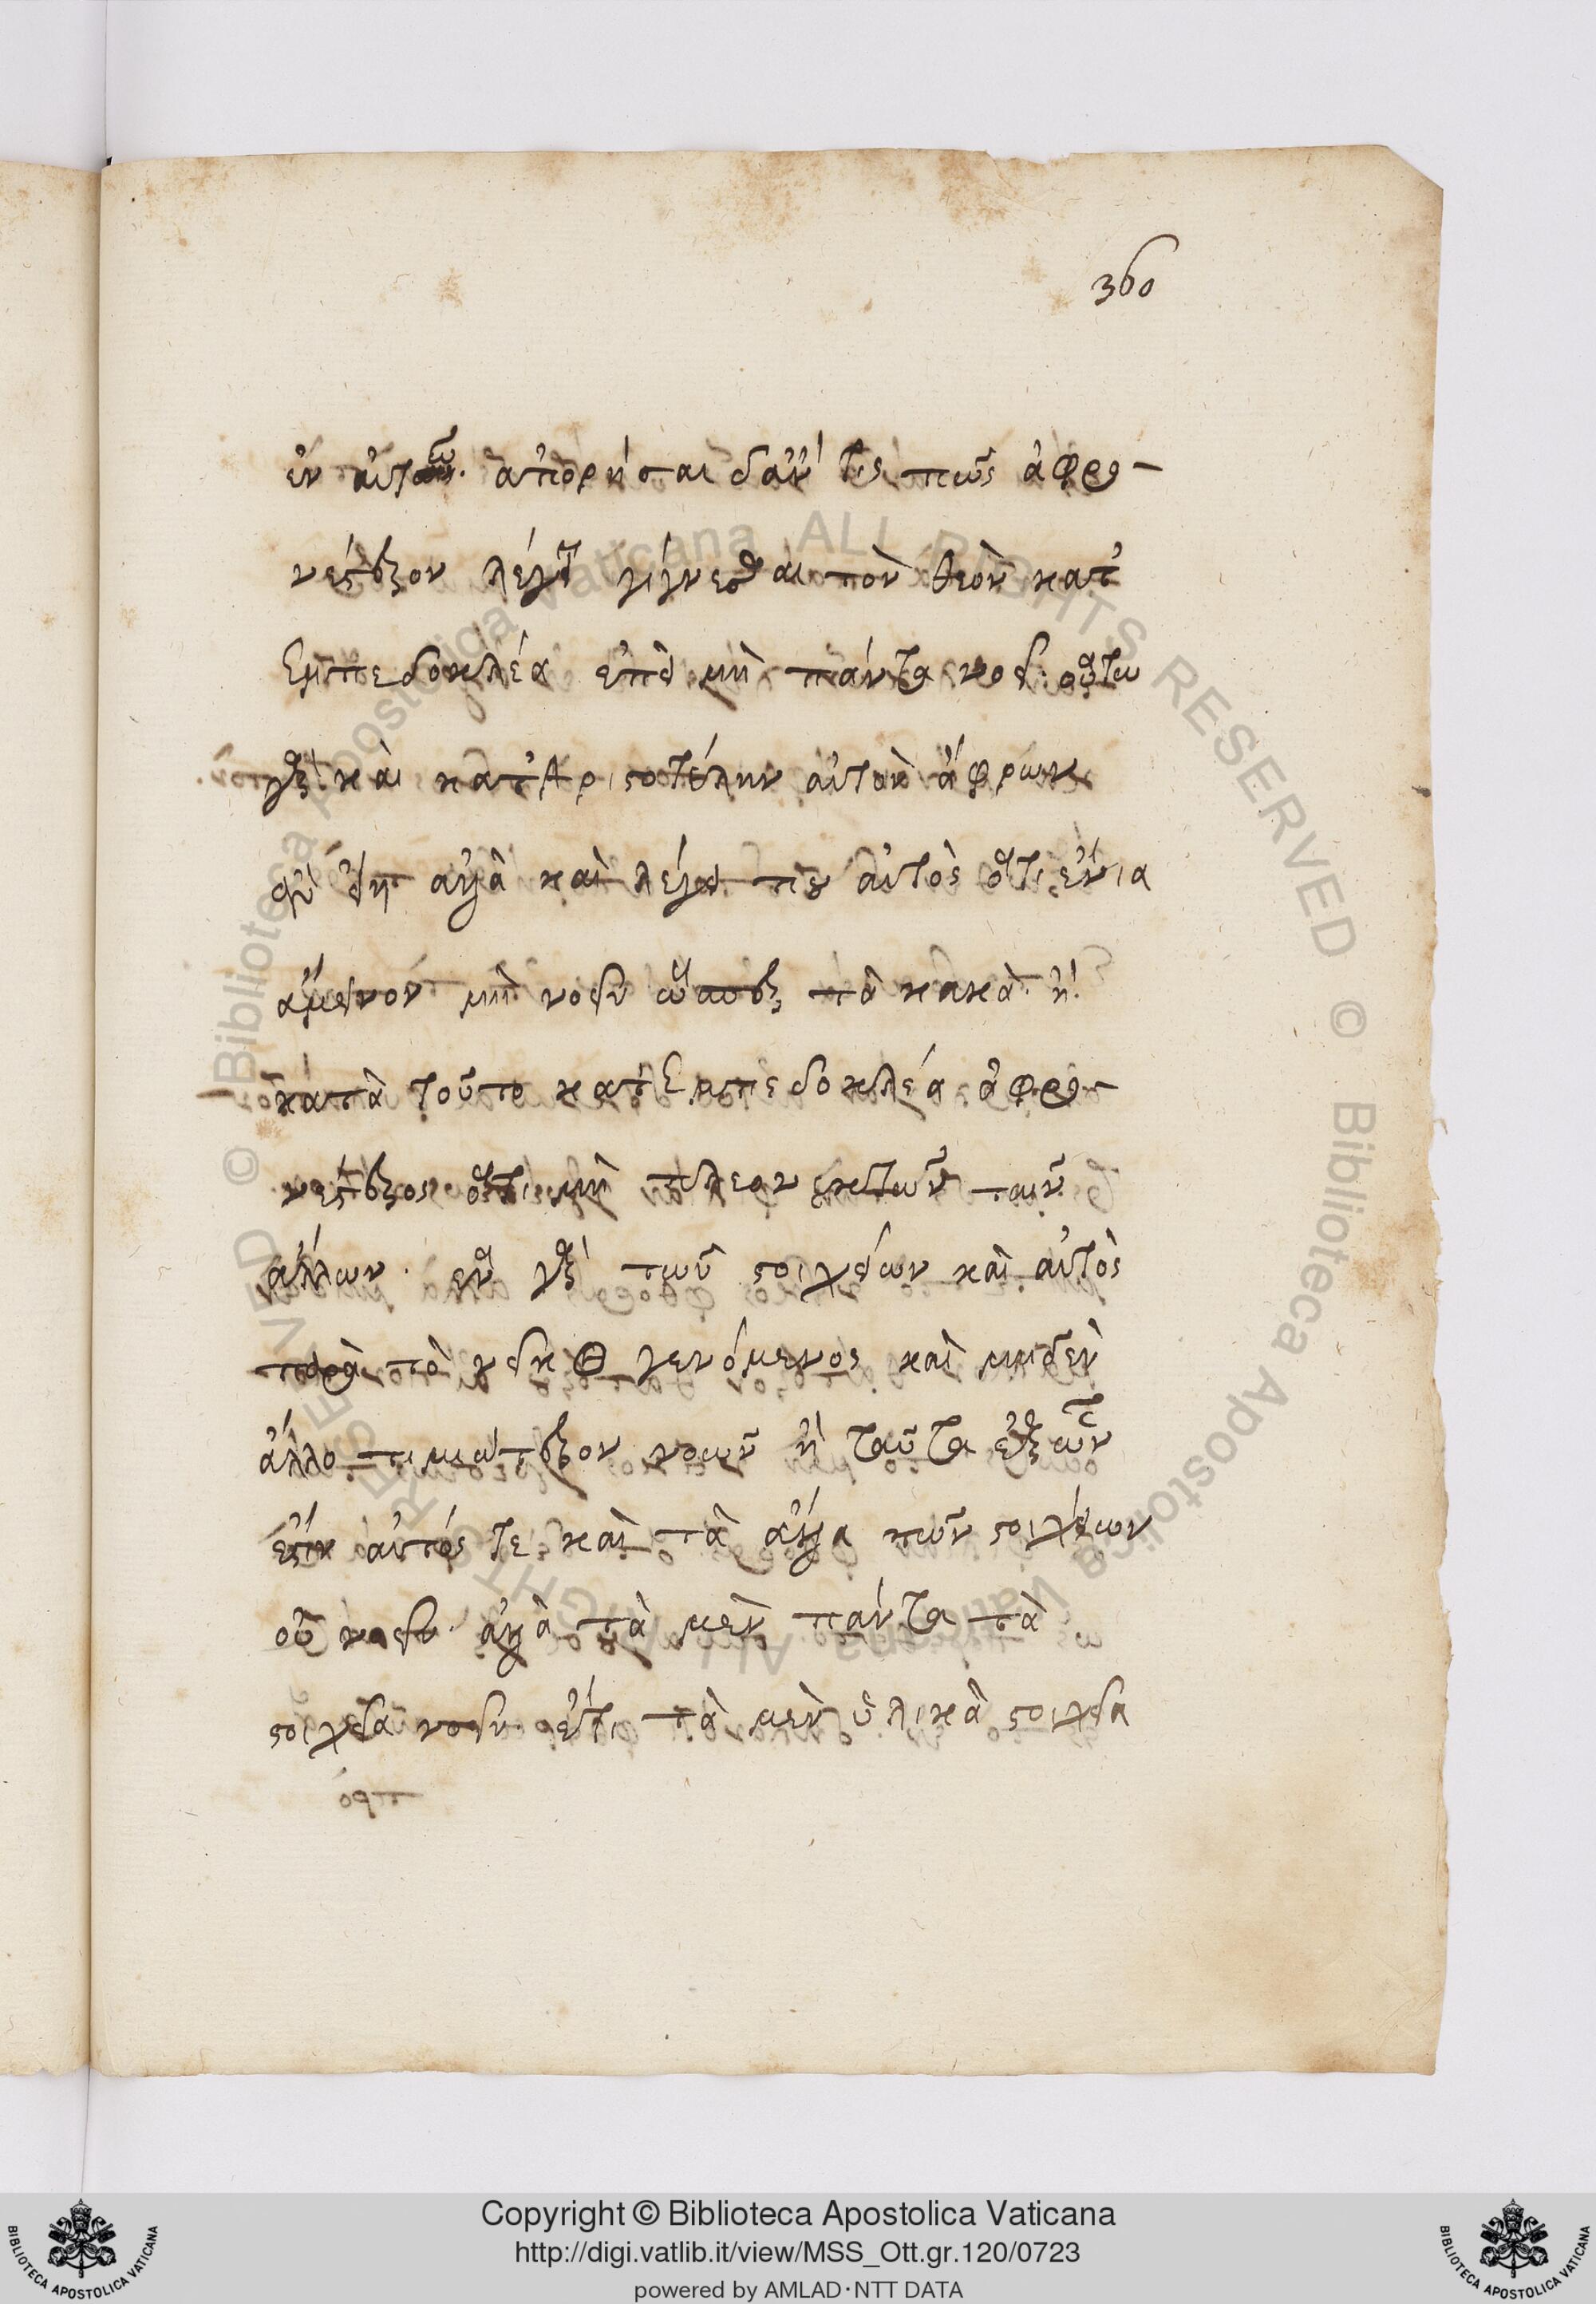 360
ἐν αὐτῶ. ἀπορήσαι δ' ἄν τις πῶς ἀφρο-
νέστερον λέγει γίγνεσθαι τὸν θεὸν κατ'
Ἐμπεδοκλέα ἐπεὶ μὴ πάντα νοεῖ· οὕτω
γὰρ καὶ κατ' Ἀριστοτέλην αὐτὸν ἄφρων
ἀλλὰ καὶ λέγει που αὐτὸς ὅτι ἔνια
ἄμεινον μὴ νοεῖν ὥσπερ τὰ κακά. ἢ
κατὰ τοῦτο κατ' Ἐμπεδοκλέα ἀφρο-
νέστερος ὅτι μὴ πλέον ἐκ τῶν
ἄλλων. ἓν γὰρ τῶν στοιχείων καὶ αὐτὸς
παρὰ τὸ νεῖκος γενόμενος καὶ μηδὲν
ἄλλο τιμιώτερον νοῶν ἢ ταῦτα ἐξ ὧν
ἐστὶν αὐτός τε καὶ τὰ ἄλλα τῶν στοιχείων
οὐ νοεῖν. ἀλλὰ τὰ μὲν πάντα τὰ
στοιχεῖα νοεῖν. ἔτι τὰ μὲν ὑλικὰ στοιχεῖα
Copyright © Biblioteca Apostolica Vaticana
http://digi.vatlib.it/view/MSS_Ott.gr.120/0723
powered by AMLAD·NTT DATA
BIBLIOTECA APOSTOLICA VATICANA
BIBLIOTECA APOSTOLICA VATICANA
© Biblioteca Apostolica Vaticana ALL RIGHTS RESERVED © Biblioteca Apostolica Vaticana ALL RIGHTS RESERVED